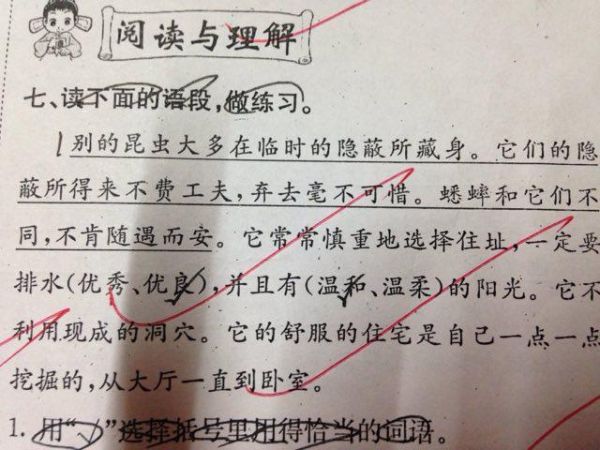 阅读与理解
七、读下面的语段,做练习。
别的昆虫大多在临时的隐蔽所藏身。它们的隐
蔽所得来不费工夫,弃去毫不可惜。蟋蟀和它们不
同,不肯随遇而安。它常常慎重地选择住址,一定要
排水(优秀、优良),并且有(温和、温柔)的阳光。它不
利用现成的洞穴。它的舒服的住宅是自己一点一点
挖掘的,从大厅一直到卧室。
1. 用“√”选择括号里用得恰当的词语。